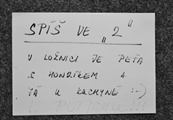 SPÍŠ VE „2"
V LOŽNICI JE PÉŤA
S HONZÍKEM A
JÁ V KUCHYNĚ :-)